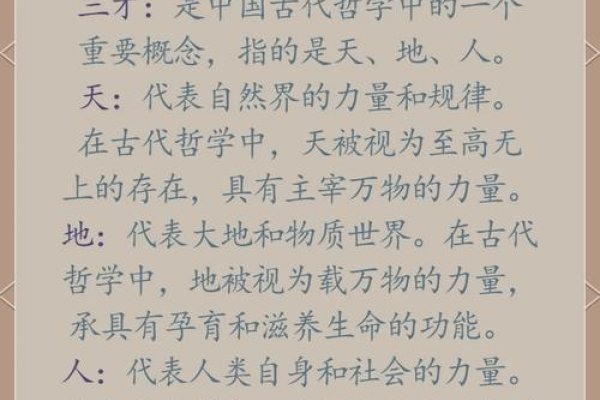 三才：是中国古代哲学中的一个
重要概念，指的是天、地、人。
天：代表自然界的力量和规律。
在古代哲学中，天被视为至高无
上的存在，具有主宰万物的力量。
地：代表大地和物质世界。在古代
哲学中，地被视为载万物的力量，
承具有孕育和滋养生命的功能。
人：代表人类自身和社会的力量。